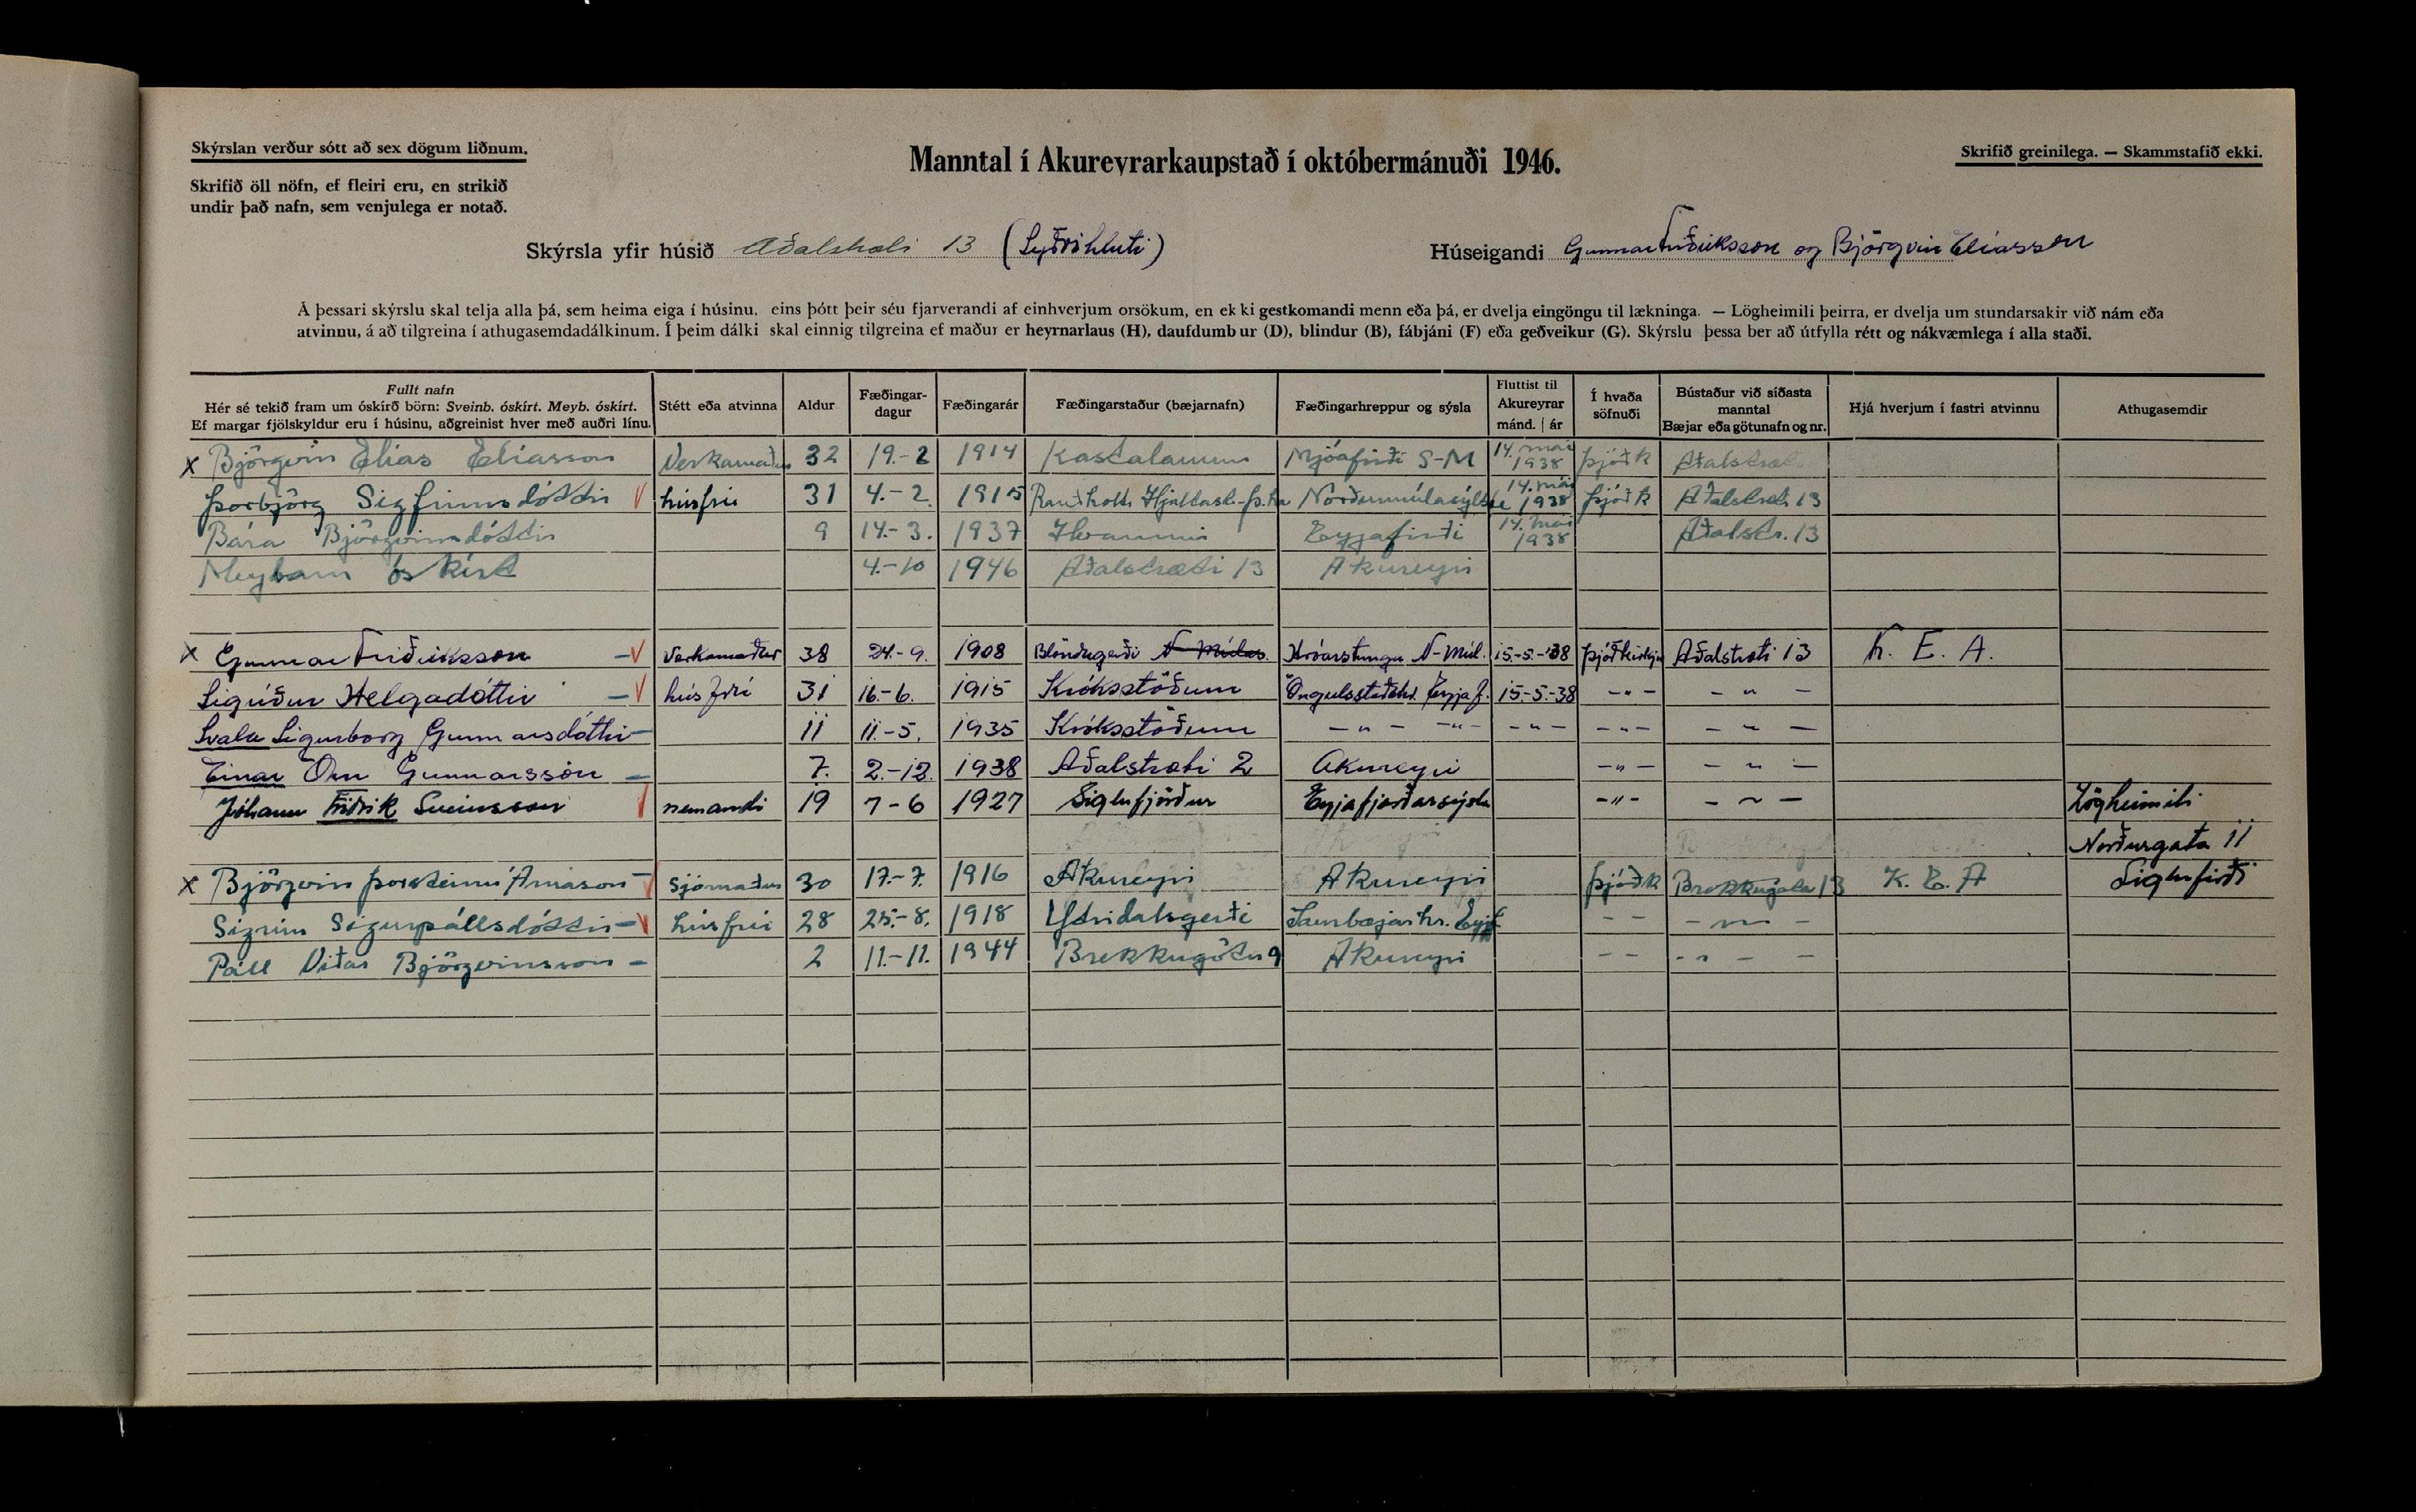 Skýrslan verður sótt að sex dögum liðnum.
Skrifið öll nöfn, ef fleiri eru, en strikið
undir það nafn, sem venjulega er notað.
Manntal í Akureyrarkaupstað í októbermánuði 1946.
Skrifið greinilega. — Skammstafið ekki.
Skýrsla yfir húsið Aðalstræti 13 (Syðrihluti)
Húseigandi Gunnar Friðriksson og Björgvin Elíasson
Á þessari skýrslu skal telja alla þá, sem heima eiga í húsinu, eins þótt þeir séu fjarverandi af einhverjum orsökum, en ekki gestkomandi menn eða þá, er dvelja eingöngu til lækninga. — Lögheimili þeirra, er dvelja um stundarsakir við nám eða
atvinnu, á að tilgreina í athugasemdadálkinum. Í þeim dálki skal einnig tilgreina ef maður er heyrnarlaus (H), daufdumbur (D), blindur (B), fábjáni (F) eða geðveikur (G). Skýrslu þessa ber að útfylla rétt og nákvæmlega í alla staði.
Fullt nafn
Hér sé tekið fram um óskírð börn: Sveinb. óskírt. Meyb. óskírt.
Ef margar fjölskyldur eru í húsinu, aðgreinist hver með auðri línu.
Stétt eða atvinna
Aldur
Fæðingar-
dagur
Fæðingarár
Fæðingarstaður (bæjarnafn)
Fæðingarhreppur og sýsla
Fluttist til
Akureyrar
mánd. | ár
Í hvaða
söfnuði
Bústaður við síðasta
manntal
Bæjar eða götunafn og nr.
Hjá hverjum í fastri atvinnu
Athugasemdir
x Björgvin Elías Elíasson Verkamaður 32 19.-2 1914 Kastalanum Mjóafirði S-M 14. maí 1938 þjóðk Aðalstræt
Þorbjörg Sigfinnsdóttir v húsfrú 31 4.-2. 1915 Rauðholti Hjaltast.-þ.há Norðurmúlasýslu 14. maí 1938 þjóðk Aðalstr. 13
Bára Björgvinsdóttir 9 14.-3. 1937 Hvammi Eyjafirði 14. maí 1938 Aðalstr. 13
Meybarn óskírt 4.-10 1946 Aðalstræti 13 Akureyri
x Gunnar Friðriksson - v Verkamaður 38 24.-9. 1908 Blöndugerði N-Múlas. Hróarstungu N-Múl. 15.-5.-'38 þjóðkirkju Aðalstræti 13 K. E. A.
Sigríður Helgadóttir - v húsfrú 31 16.-6. 1915 Króksstöðum Öngulsstaðahr. Eyjaf. 15.-5.-38 -"- - " -
Svala Sigurborg Gunnarsdóttir - 11 11.-5. 1935 Króksstöðum - " - -"- -"- -"- - " -
Einar Örn Gunnarsson - 7. 2.-12. 1938 Aðalstræti 2 Akureyri -"- - " -
Jóhann Friðrik Sveinsson v nemandi 19 7-6 1927 Siglufjörður Eyjafjarðarsýsla -"- - " - Lögheimili
Norðurgata 11
x Björgvin Þorsteinn Árnason - v Sjómaður 30 17.-7. 1916 Akureyri Akureyri þjóðk Brekkugata 13 K. E. A Siglufirði
Sigrún Sigurpállsdóttir - v húsfrú 28 25.-8. 1918 Ystidalsgerði Saurbæjarhr. Eyjf - - - " -
Páll Viðar Björgvinsson - 2 11.-11. 1944 Brekkugötu 9 Akureyri - - - " - -